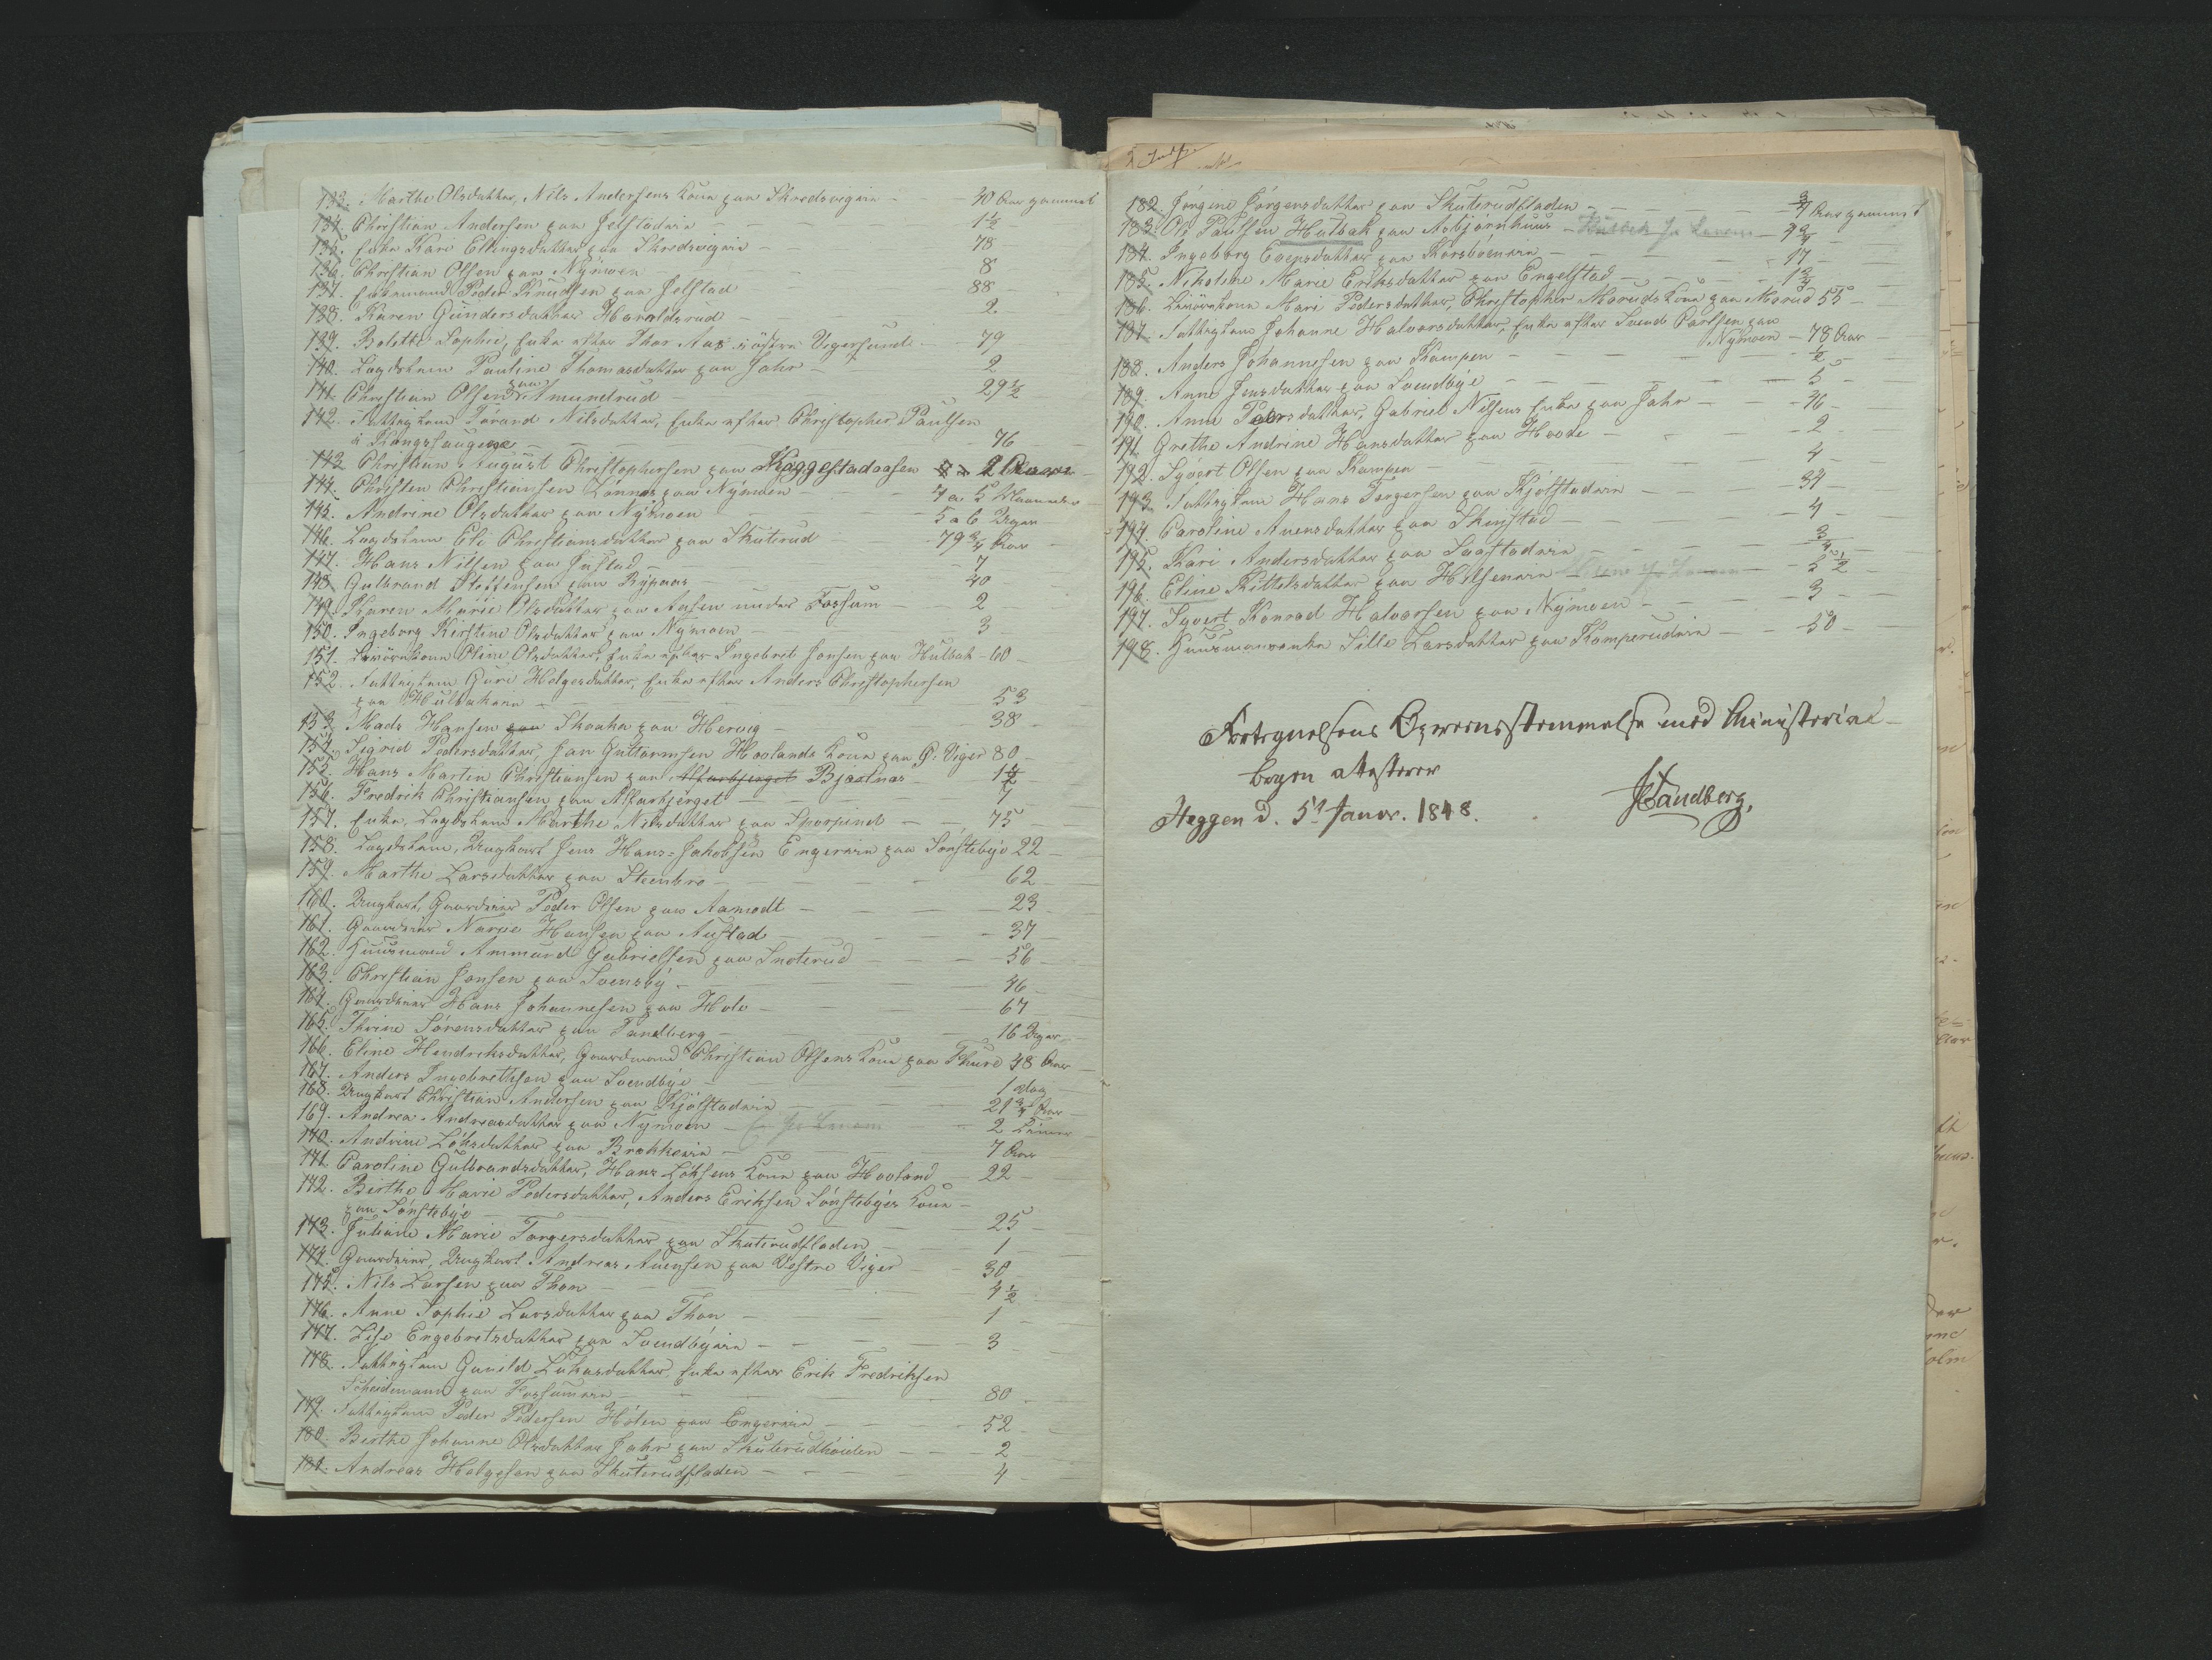 133. Marthe Olsdatter, Nils Andersens Kone paa Skredsvigeie - 40 Aar gammel
134. Christian Andersen paa Jelstadeie - 1½ -
135. Enke Kari Ellingsdatter paa Skredsvigeie - 78
136. Christian Olsen paa Nÿmoen - 8
137. Enkemand Peder Knudsen paa Jelstad - 88 -
138. Karen Gundersdatter Haraldsrud - 2
139. Bolette Sophie, Enke efter Thor Aas i östre Vegersund - 79
140. Lægdslem Pauline Thomasdatter paa Jahr - 2
141. Christian Olsen paa Amundrud - 29½
142. Fattiglem Tarand Nilsdatter, Enke efter Christopher Paulsen
i Kongshaugene - 76
143. Christian August Christophersen paa Kaggestadaasen 2 Uger
144. Christen Christiansen Lönnes paa Nÿmoen - 4 a 5 Maaneder
145. Andrine Olsdatter paa Nÿmoen - 5 a 6 Uger
146. Lægdslem Eli Christiansdatter paa Skuterud - 79¾ Aar
147. Hans Nilsen paa Justad - 7
148. Gulbrand Steffensen paa Ryghaas - 40 -
149. Karen Marie Olsdatter paa Aasen under Fossum - 2
150. Ingeborg Kirstine Olsdatter paa Nymoen - 3
151. Livörekone Oline Olsdatter, Enke efter Ingebret Jonsen paa Hulbak - 60
152. Fattiglem Guri Helgesdatter, Enke efter Anders Christophersen
paa Hulbakene - 53
153. Mads Hansen Skoaka paa Hervig - 38 -
154. Sigrid Pedersdatter Jan Guttormsen Hoolands Kone paa Ö. Viger 80 -
155. Hans Marten Christiansen paa Alfarbjerget Bjästnes - 1½
156. Fredrik Christiansen paa Alfarbjerget - 1
157. Enke, Lægdslem Marthe Nilsdatter paa Skorpind - 75
158. Lægdslem, Ungkarl Jens Hans-Jakobsen Engereie paa Sönstebÿe 22 -
159. Marthe Larsdatter paa Steenbro - 62
160. Ungkarl, Gaardeier Peder Olsen paa Aamodt - 23
161. Gaardeier Narve Hansen paa Austad - 37
162. Huusmand Ammund Gabrielsen paa Snoterud - 56 -
163. Christian Jonsen paa Svensbÿ - 46
164. Gaardeier Hans Johannesen paa Hole - 67
165. Thrine Sörensdatter paa Tandberg - 16 Uger
166. Eline Hendriksdatter, Gaardmand Christian Olsens Kone paa Thure 48 Aar
167. Anders Ingebrethsen paa Svendbÿe - 1 Dag
168. Ungkarl Christian Andersen paa Kjölstadeie - 21¾ Aar
169. Andrea Andreasdatter paa Nymoen - 2 Timer
170. Andrine Löksdatter paa Brekkeeie - 7 Aar
171. Caroline Gulbrandsdatter, Hans Löksens Kone paa Hooland - 22 -
172. Birthe Marie Pedersdatter, Anders Eriksen Sönstebÿes Kone
paa Sönstebÿe - 25 -
173. Juliane Marie Torgersdatter paa Skuterudfladen - 1
174. Gaardeier, Ungkarl Andreas Auensen paa Vestre Viger - 30
175. Nils Larsen paa Thon - 4½
176. Anne Sophie Larsdatter paa Thon - 1
177. Lise Engebretsdatter paa Svendbÿeie - 3
178. Fattiglem Gunild Lukasdatter, Enke efter Erik Fredriksen
Scheidemann paa Fossumeie - 80
179. Fattiglem Peder Pedersen Holen paa Engereie - 52
180. Birthe Johanne Olsdatter Jahr paa Skuterudhöiden - 2
181. Andreas Helgesen paa Skuterudfladen - 4
182. Jörgine Jörgensdatter paa Skuterudfladen - ¾ Aar gammel
183. Ole Paulsen Hulbak paa Asbjørnhuus - Hulbak - 4¾ -
184. Ingeborg Evensdatter paa Korsböeneie - 17 -
185. Nikoline Marie Eriksdatter paa Engelstad - 1¾ -
186. Livörekone Mari Pedersdatter, Christopher Moruds Kone paa Morud 55 -
187. Fattiglem Johanne Halvorsdatter, Enke efter Svend Carlsen paa
Nÿmoen - 78 Aar
188. Anders Johannesen paa Kampen - ½ -
189. Anne Jensdatter paa Svendbÿe - 5 -
190. Anne Pedersdatter, Gabriel Nilsens Enke paa Jahr - 46 -
191. Grethe Andrine Hansdatter paa Hoole - 2 -
192. Syvert Olsen paa Kampen - 4 -
193. Fattiglem Hans Torgersen paa Kjölstadeie - 34 -
194. Caroline Auensdatter paa Skinstad - 4 -
195. Kari Andersdatter paa Saastadeie - ¾ -
196. Eline Kittelsdatter paa Hilseneie - 5½ -
197. Syvert Konrad Halvorsen paa Nÿmoen - 3 -
198. Huusmansenke Sille Larsdatter paa Komperudeie - 50 -
Fortegnelsens Overeensstemmelse med Ministerial-
bogen attesterer
Heggen d. 5t Januar. 1848. JTandberg.